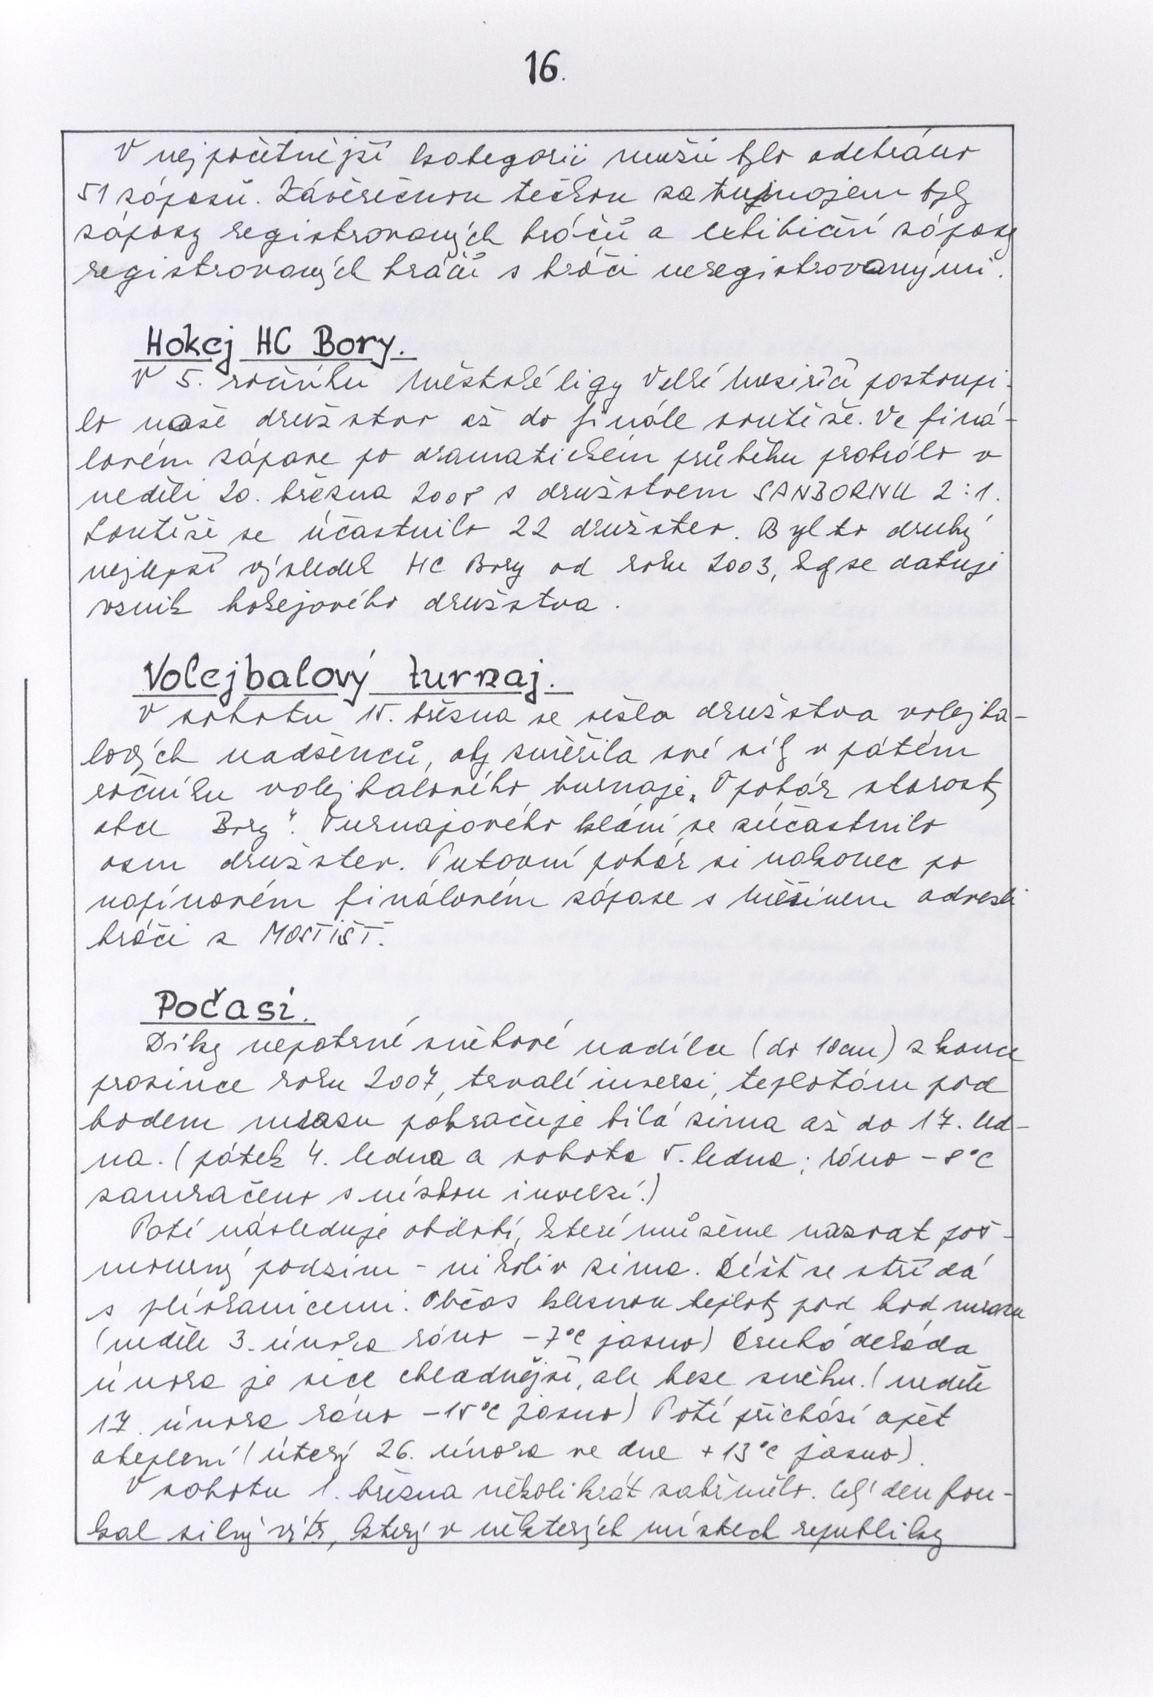 16.
V nejpočetnější kategorii mužů bylo odehráno
51 zápasů. Závěrečnou tečkou za turnajem byly
zápasy registrovaných hráčů a exhibiční zápasy
registrovaných hráčů s hráči neregistrovanými.
Hokej HC Bory.
V 5. ročníku městské ligy Velké Meziříčí postoupi-
lo naše družstvo až do finále soutěže. Ve finá-
lovém zápase po dramatickém průběhu prohrálo v
neděli 20. března 2008 s družstvem SANBORNU 2:1.
Soutěže se účastnilo 22 družstev. Byl to druhý
nejlepší výsledek HC Bory od roku 2003, kdy se datuje
vznik hokejového družstva.
Volejbalový turnaj.
V sobotu 15. března se sešla družstva volejba-
lových nadšenců, aby změřila své síly v pátém
ročníku volejbalového turnaje „O pohár starosty
obce Bory“. Turnajového klání se zúčastnilo
osm družstev. Putovní pohár si nakonec po
napínavém finálovém zápase s Měřínem odvezli
hráči z MOSTIŠŤ.
Počasí.
Díky nepatrné sněhové nadílce (do 10cm) z konce
prosince roku 2007, trvalé inverzi, teplotám pod
bodem mrazu pokračuje bílá zima až do 17. led-
na. (pátek 4. ledna a sobota 5. ledna; ráno -8°C
zamračeno s nízkou inverzí.)
Poté následuje období, které můžeme nazvat poš-
mourný podzim - nikoliv zima. Déšť se střídá
s plískanicemi. Občas klesnou teploty pod bod mrazu
(neděle 3. února ráno -7°C jasno) Druhá dekáda
února je sice chladnější, ale beze sněhu. (neděle
17. února ráno -15°C jasno) Poté přichází opět
oteplení (úterý 26. února ve dne +13°C jasno).
V sobotu 1. března několikrát zahřmělo. Celý den fou-
kal silný vítr, který v některých místech republiky